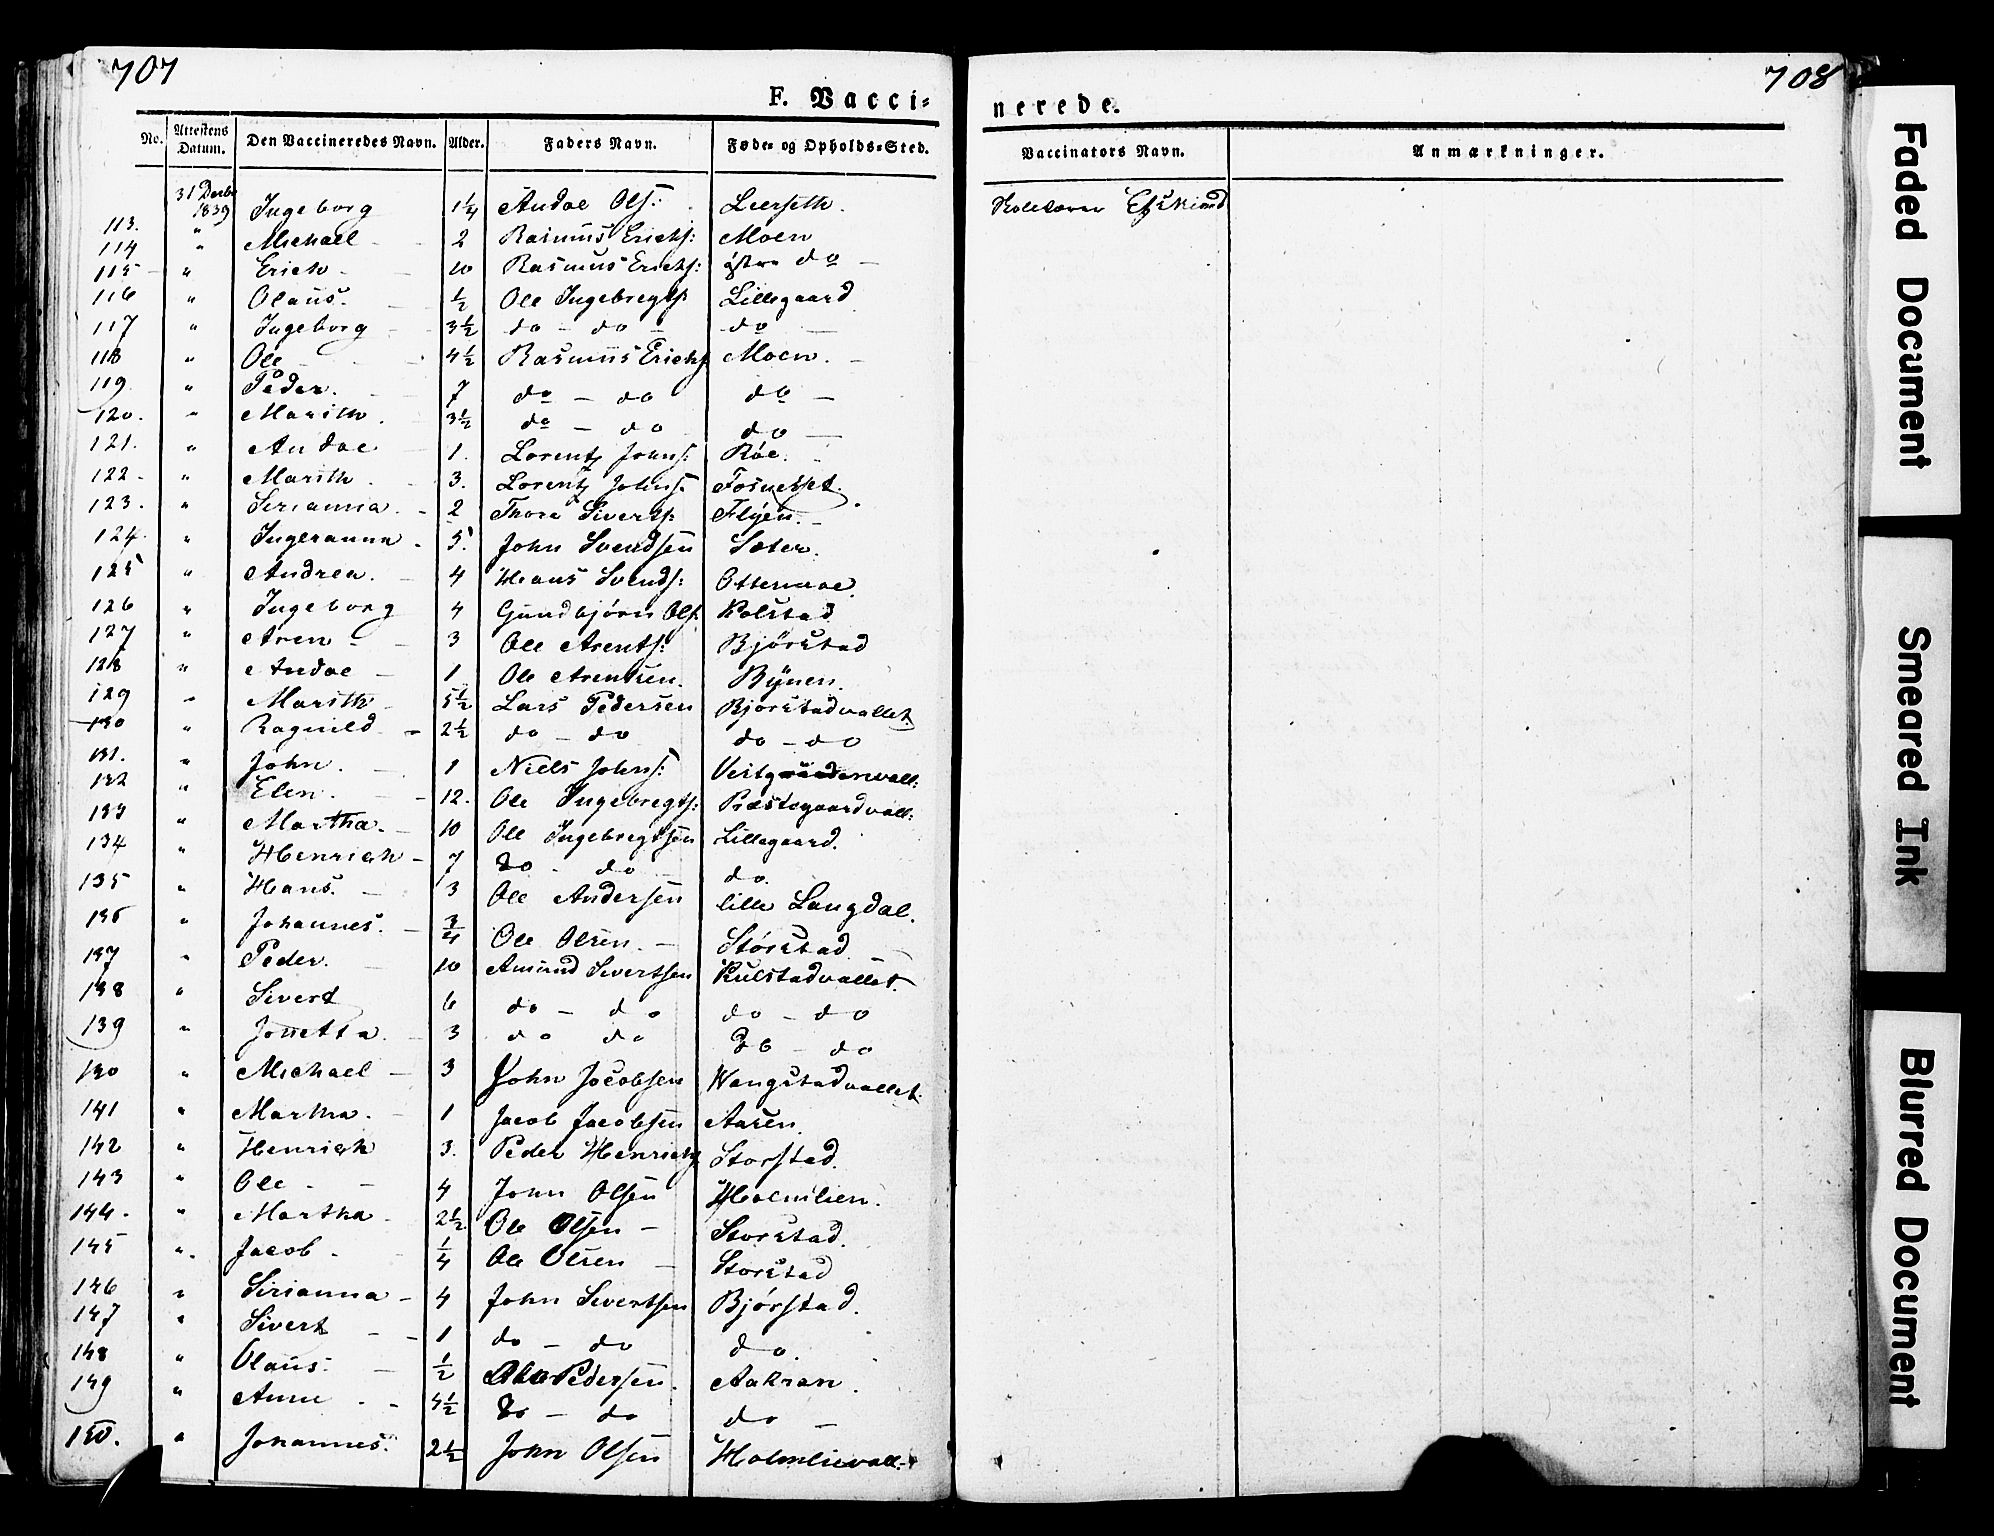 707
708
F. Vacci-
nerede.
No. Attestens Datum. Den Vaccineredes Navn. Alder. Faders Navn. Føde- og Opholds-Sted. Vaccinators Navn. Anmærkninger.
31 Decbr 1839
113. " Ingeborg 1 1/4 Andoe Ols: Leerseth. Skolelærer
114 " Michael 2 Rasmus Erichs: Moen
115 " Erich 10 Rasmus Erichs: østre do
116 " Olaus. 1/2 Ole Ingebregts: Lillegaard
117 " Ingeborg 3 1/2 do - do do
118 " Ole 4 1/2 Rasmus Erichs: Moen.
119 " Peder. 7 do - do do
120. " Marith. 3 1/2 do - do do
121. " Andoe 1. Lorentz Johns: Røe.
122 " Marith. 3. Lorentz Johns: Fosnesset.
123. " Sirianna. 2 Thore Siverts: Flyen.
124. " Ingeranna 5. John Svendsen Sæter.
125 " Andrea. 4 Hans Svends: Ottermoe.
126 " Ingeborg 4 Gundbjørn Ols: Kolstad
127 " Aren 3 Ole Arents: Bjørstad
128 " Andoe 1 Ole Arentsen. Bÿnen.
129 " Marith 5 1/2 Lars Pedersen Bjørstadvallet.
130 " Ragnild 2 1/2 do - do do - do
131. " John. 1 Niels Johns:
132 " Elen. 12. Ole Ingebregts: Præstegaardvall:
133 " Martha. 10 Ole Ingebregtsen Lillegaard.
134 " Henrich 7 do - do do.
135 " Hans. 3 Ole Andersen lille Langdal.
136 " Johannes. 3/4 Ole Olsen. Størstad
137 " Peder. 10 Amund Sivertsen Kulstadvallet.
138 " Sivert 6 do - do do - do
139 " Jonetta. 3 do do do - do
130 " Michael 3 John Jacobsen Wangstadvallet.
141 " Martha. 1 Jacob Jacobsen Aasen.
142 " Henrich 3. Peder Henrichs Storstad.
143 " Ole 4 John Olsen Holmlien.
144. " Martha 2 1/2. Ole Olsen Storstad.
145 " Jacob 1/4 Ole Olsen Storstad
146 " Sirianna 4 John Sivertsen Bjørstad.
147 " Sivert 1 do - do do.
148 " Olaus. 1/2 Pedersen. Aakran.
149 " Anne 4 1/2 do - do do
150. " Johannes. 2 1/2 John Olsen Holmlievall:
Faded Document
Smeared Ink
Blurred Document